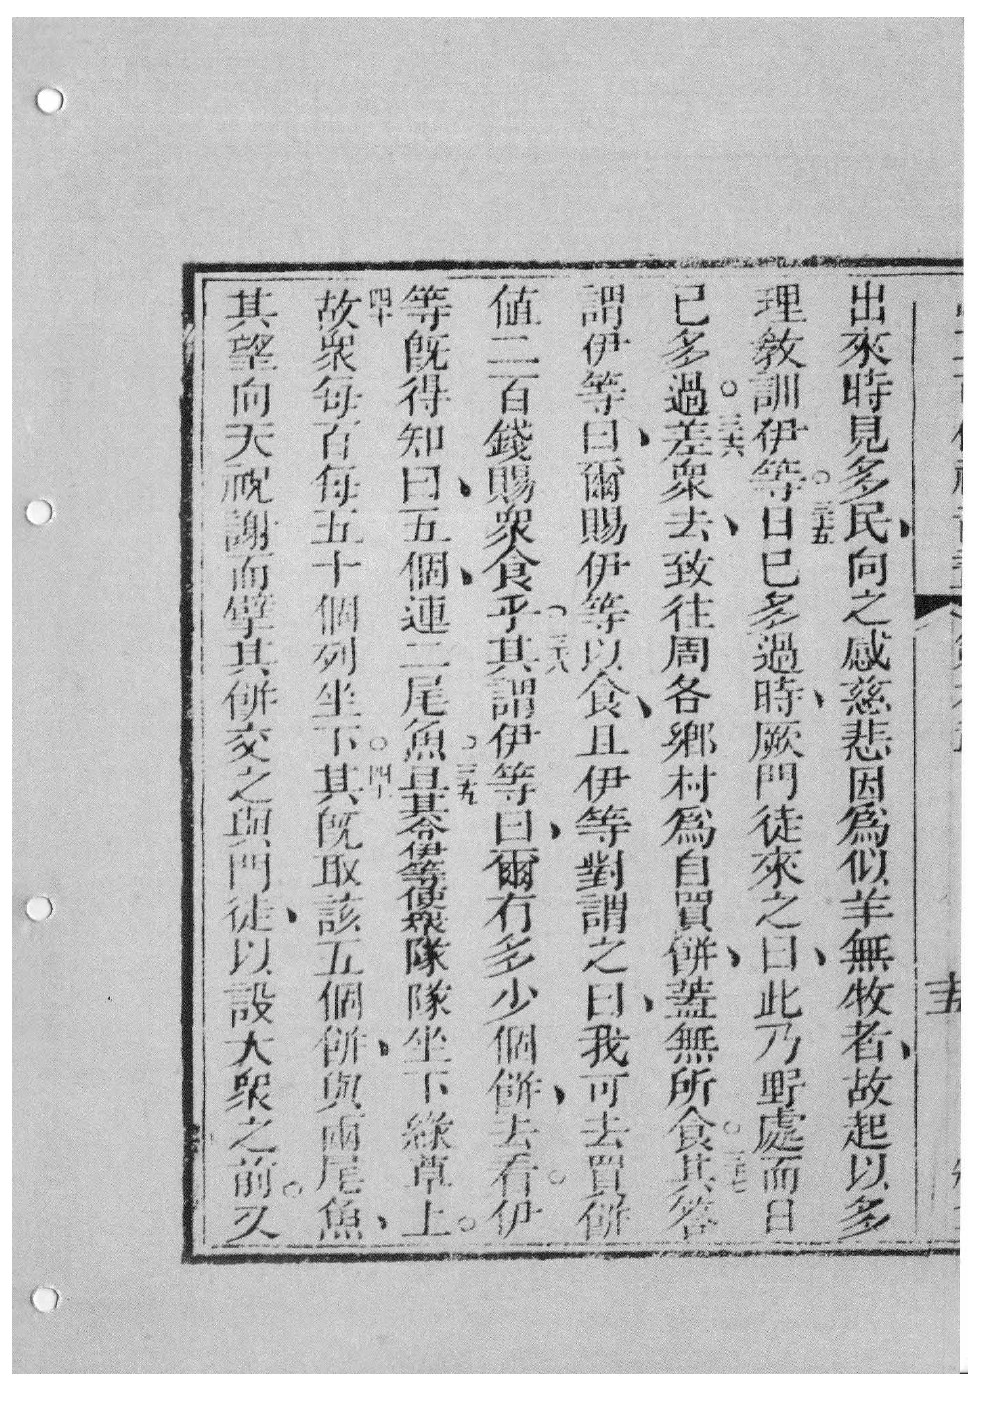 出來時見多民、向之感慈悲因爲似羊無牧者、故起以多
理教訓伊等。三十五日已多過時、厥門徒來之曰、此乃野處而日
已多過。三十六差衆去、致往周各鄉村爲自買餅、蓋無所食。三十七其答
謂伊等曰、爾賜伊等以食、且伊等對謂之曰、我可去買餅
値二百錢賜衆食乎。三十八其謂伊等曰、爾有多少個餅、去看。伊
等旣得知曰、五個、連二尾魚。三十九且其令伊等使衆隊隊坐下綠草上。
四十故衆每百每五十個列坐下。四十一其旣取該五個餅、與兩尾魚、
其望向天祝謝而擘其餅交之與門徒、以設大衆之前。又
五